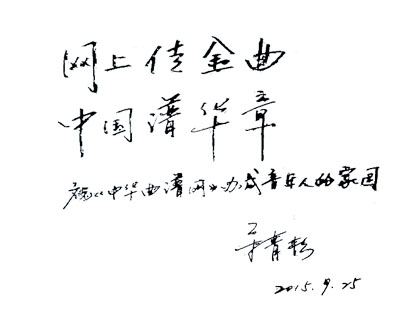 网上传金曲
中国谱华章
祝《中华曲谱网》办成音乐人的家园
青松
2015.9.25